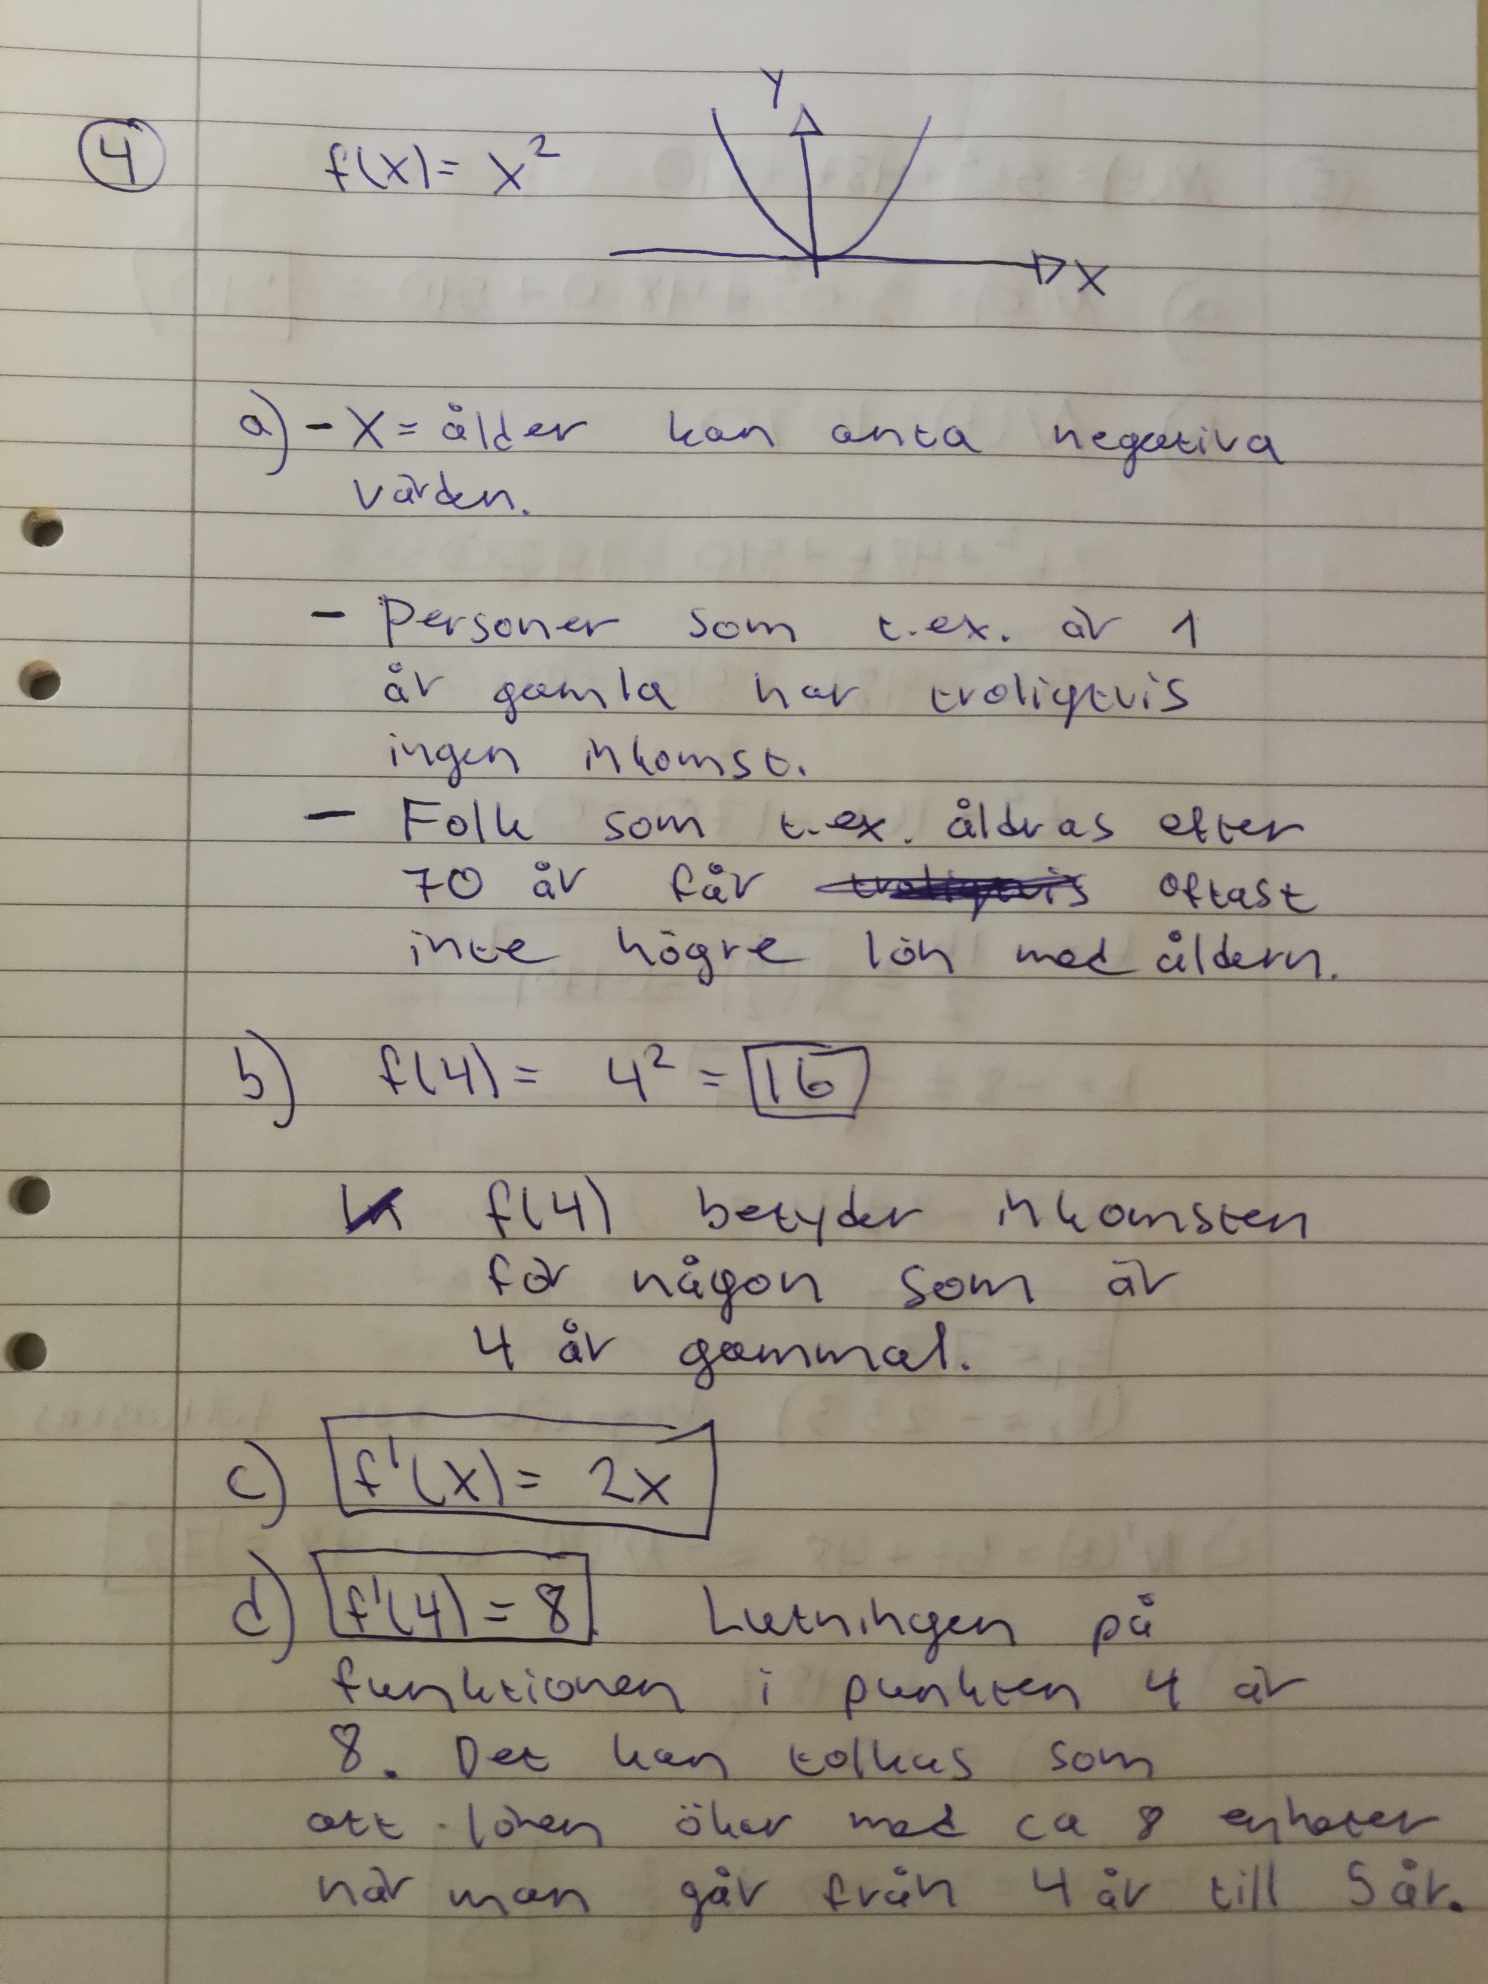 4
f(x) = x²
Y
X
a) - X = ålder kan anta negativa
värden.
- Personer som t.ex. är 1
år gamla har troligtvis
ingen inkomst.
- Folk som t.ex. åldras efter
70 år får troligtvis oftast
inte högre lön med åldern.
b) f(4) = 4² = 16
f(4) betyder inkomsten
för någon som är
4 år gammal.
c) f'(x) = 2x
d) f'(4) = 8. Lutningen på
funktionen i punkten 4 är
8. Det kan tolkas som
att lönen ökar med ca 8 enheter
när man går från 4 år till 5 år.